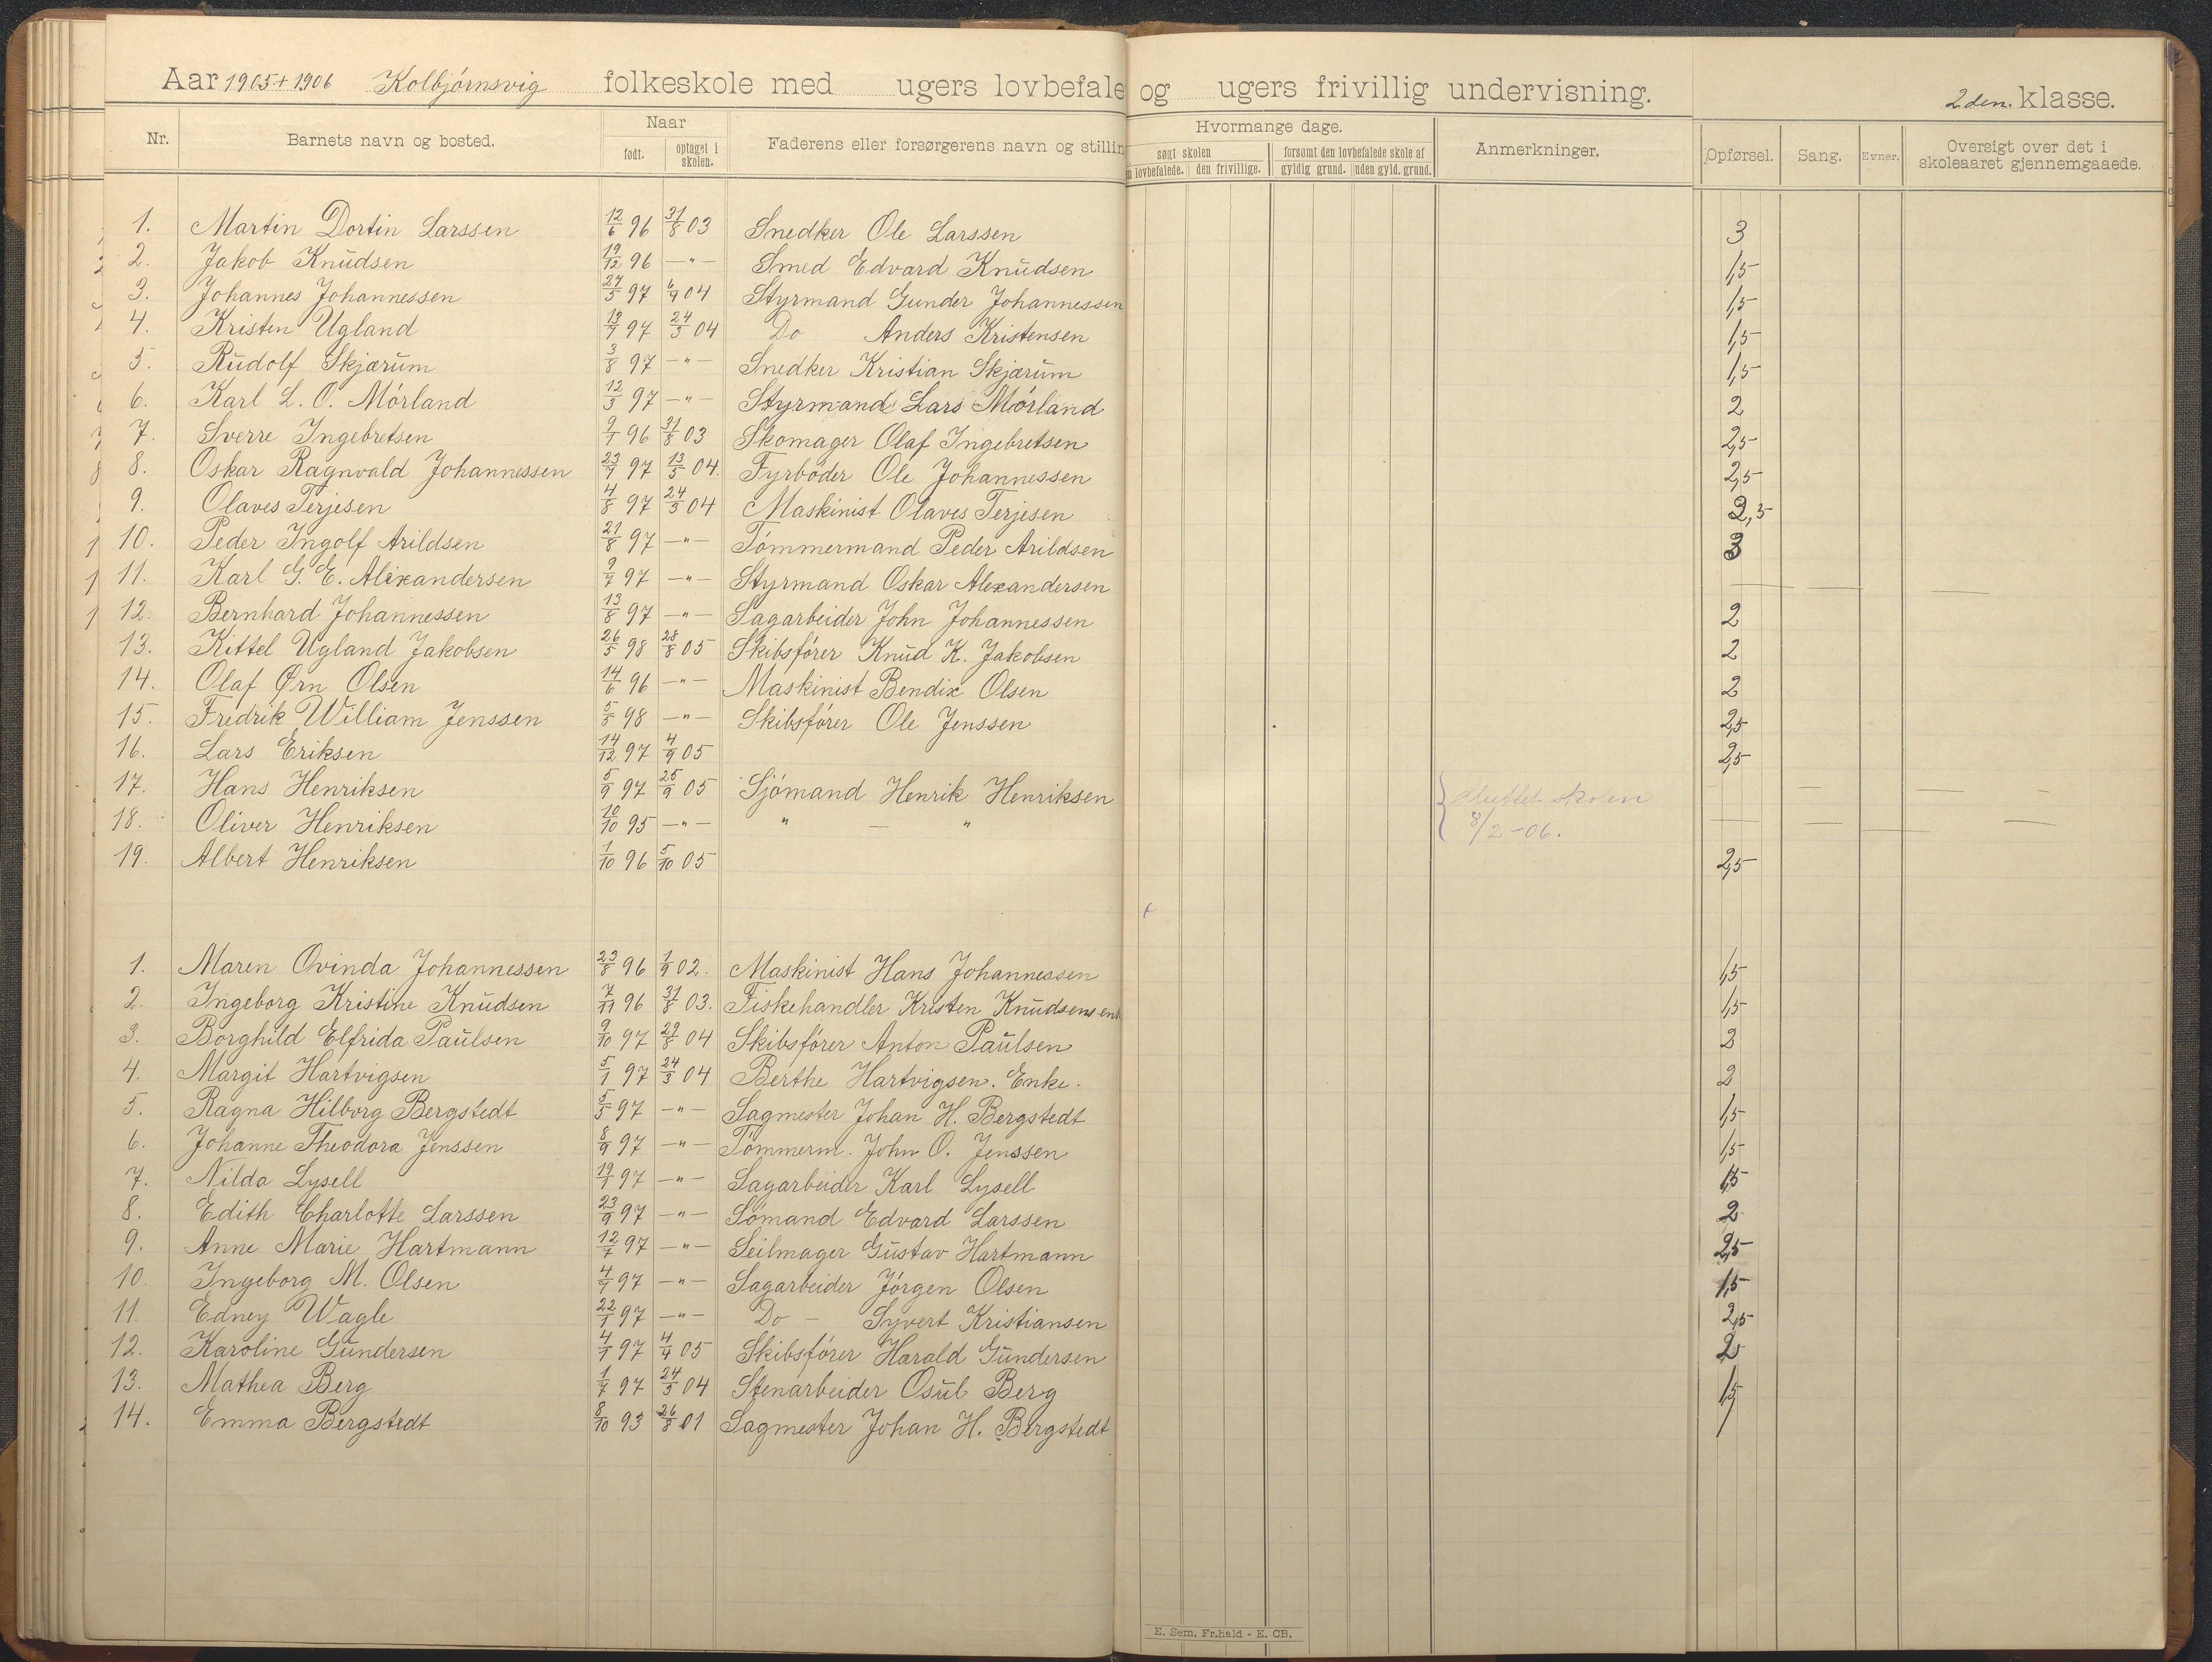 Aar 1905 + 1906 Kolbjörnsvig folkeskole med ugers lovbefale og ugers frivillig undervisning. 2den klasse.
Nr. Barnets navn og bosted. Naar Faderens eller forsørgerens navn og stillin Hvormange dage. Anmerkninger. Opførsel. Sang. Evner. Oversigt over det i skoleaaret gjennemgaaede.
født. optaget i skolen. søgt skolen forsømt den lovbefalede skole af
n lovbefalede. den frivillige. gyldig grund. uden gyld. grund.
1. Martin Dortin Larssen 12/6 96 31/8 03 Snedker Ole Larssen 3
2. Jakob Knudsen 19/12 96 —"— Smed Edvard Knudsen 1,5
3. Johannes Johannessen 27/5 97 6/9 04 Styrmand Gunder Johannessen 1,5
4. Kristen Ugland 97 24/5 04 Do Anders Kristensen 1,5
5. Rudolf Skjærum 3/8 97 —"— Snedker Kristian Skjærum 1,5
6. Karl L. O. Mörland 12/3 97 —"— Styrmand Lars Mörland 2
7. Sverre Ingebretsen 9/1 96 31/8 03 Skomager Olaf Ingebretsen 2,5
8. Oskar Ragnvald Johannessen 23/7 97 13/5 04. Fyrböder Ole Johannessen 2,5
9. Olaves Terjesen 4/8 97 24/5 04 Maskinist Olaves Terjesen 2,5
10. Peder Ingolf Arildsen 21/8 97 —"— Tömmermand Peder Arildsen 3
11. Karl G. E. Alexandersen 9/7 97 —"— Styrmand Oskar Alexandersen —
12. Bernhard Johannessen 13/8 97 —"— Sagarbeider John Johannessen 2
13. Kittel Ugland Jakobsen 26/5 98 28/8 05 Skibsförer Knud K. Jakobsen 2
14. Olaf Ørn Olsen 14/6 96 —"— Maskinist Bendix Olsen 2
15. Fredrik William Jenssen 5/8 98 —"— Skibsförer Ole Jenssen 2,5
16. Lars Eriksen 14/12 97 4/9 05 2,5
17. Hans Henriksen 5/9 97 25/9 05 Sjömand Henrik Henriksen sluttet skolen
18. Oliver Henriksen 10/10 95 —"— " — " 8/2-06.
19. Albert Henriksen 1/10 96 5/10 05 2,5
1. Maren Ovinda Johannessen 23/8 96 1/9 02. Maskinist Hans Johannessen 1,5
2. Ingeborg Kristine Knudsen 7/11 96 31/8 03. Fiskehandler Kristen Knudsens enk 1,5
3. Borghild Elfrida Paulsen 9/10 97 29/8 04 Skibsförer Anton Paulsen 2
4. Margit Hartvigsen 5/1 97 24/5 04 Berthe Hartvigsen. Enke. 2
5. Ragna Hilborg Bergstedt 5/5 97 —"— Sagmester Johan H. Bergstedt 1,5
6. Johanne Theodora Jenssen 8/9 97 —"— Tömmerm. John O. Jenssen 1,5
7. Nilda Lysell 97 —"— Sagarbeider Karl Lysell 1,5
8. Edith Charlotte Larssen 23/9 97 —"— Sömand Edvard Larssen 2
9. Anne Marie Hartmann 12/7 97 —"— Seilmager Gustav Hartmann 2,5
10. Ingeborg M. Olsen 97 —"— Sagarbeider Jörgen Olsen 1,5
11. Edney Wagle 22/1 97 —"— Do — Syvert Kristiansen 2,5
12. Karoline Gundersen 97 4/4 05 Skibsförer Harald Gundersen 2
13. Mathea Berg 1/7 97 24/5 04 Stenarbeider Osul Berg 1,5
14. Emma Bergstedt 8/10 93 26/8 01 Sagmester Johan H. Bergstedt
E. Sem. Fr.hald - E. CB.